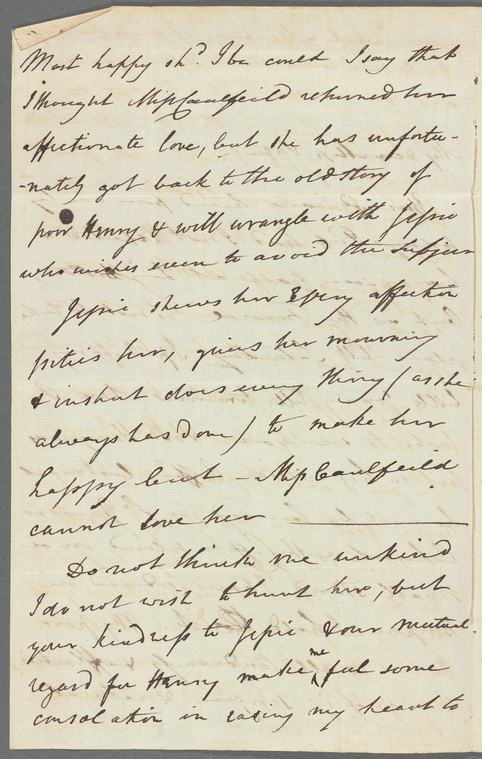 Most happy shd. I be could I say that
I thought Miss Caulfeild returned her
affectionate love, but she has unfortu-
-nately got back to the old story of
poor Henry & will wrangle with Jessie
who wishes even to avoid the subject
Jessie shews her Every affection
pities her, gives her mourning
& in short does every thing (as she
always has done) to make her
happy but - Miss Caulfeild
cannot love her
Do not think me unkind
I do not wish to hunt her, but
your kindness to Jessie & our mutual
regard for Henry make me feel some
consolation in easing my heart to